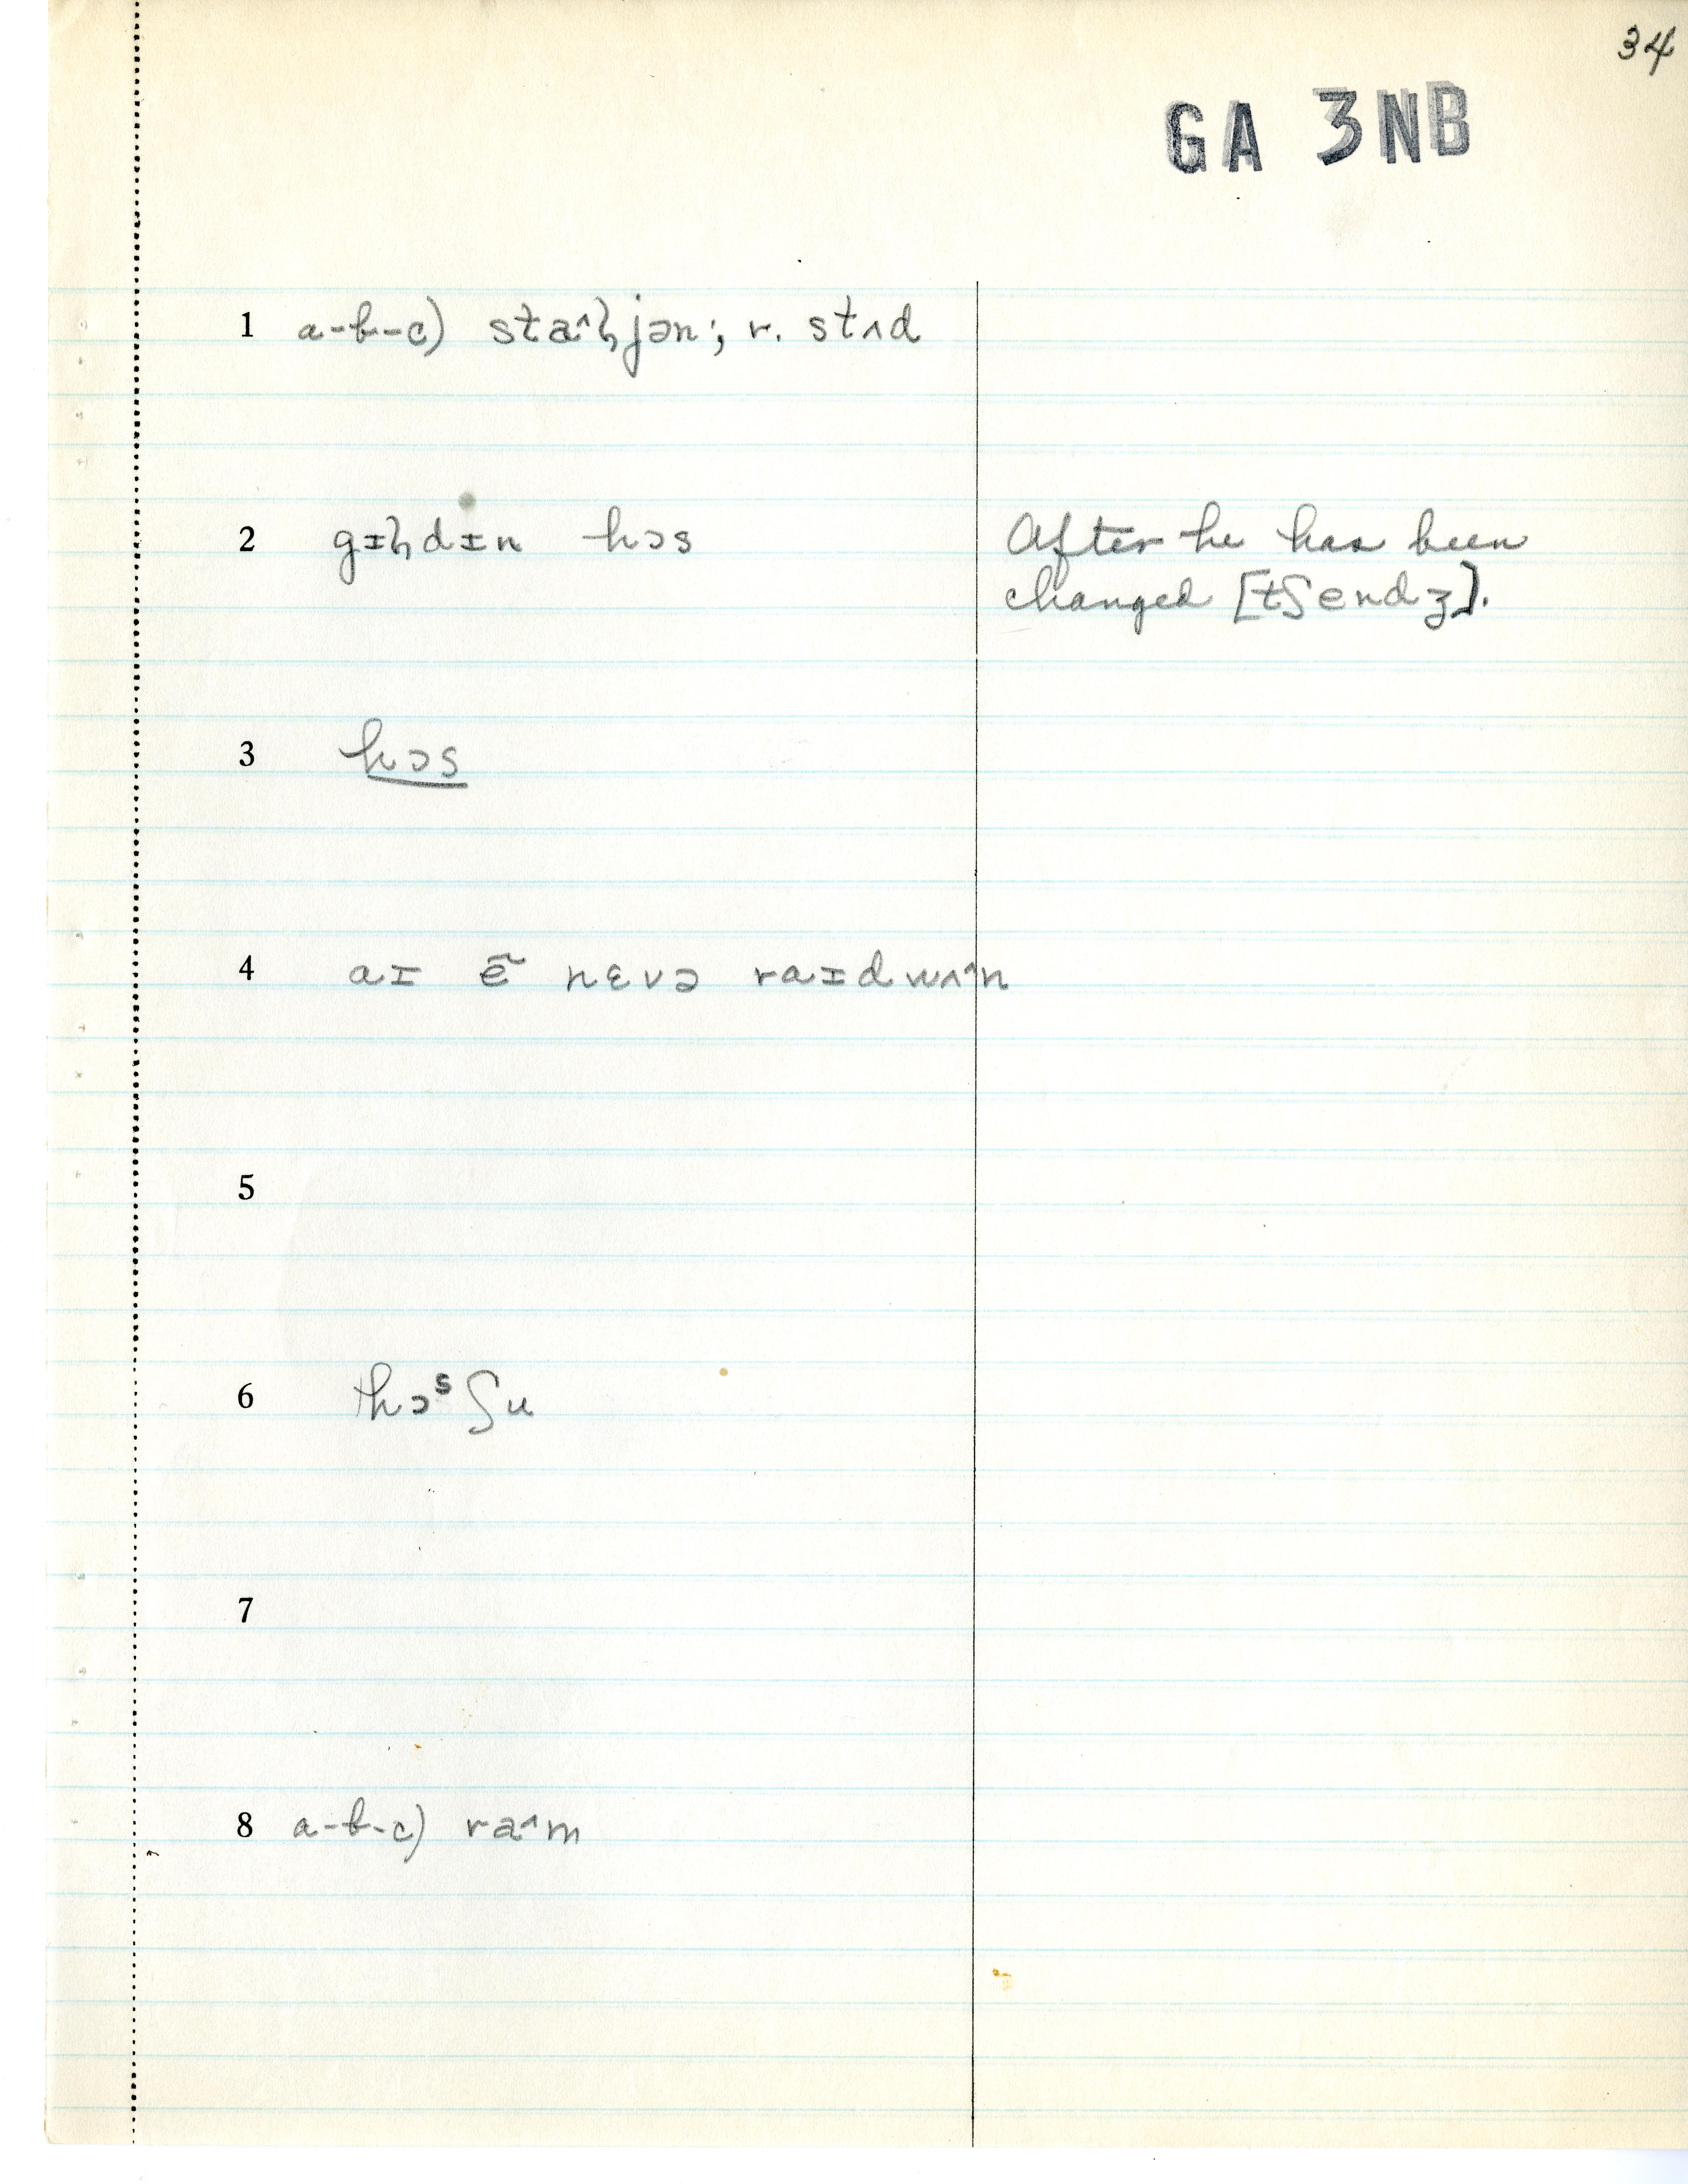 34
GA 3NB
1 a-b-c) staˆɫjən; r. stʌd
2 gɪɫdɪn hɔs
After he has been
changed [tʃendʒ].
3 hɔs
4 aɪ ẽ nɛvə raɪd wʌˆn
5
6 hɔˢʃu
7
8 a-b-c) raˆm